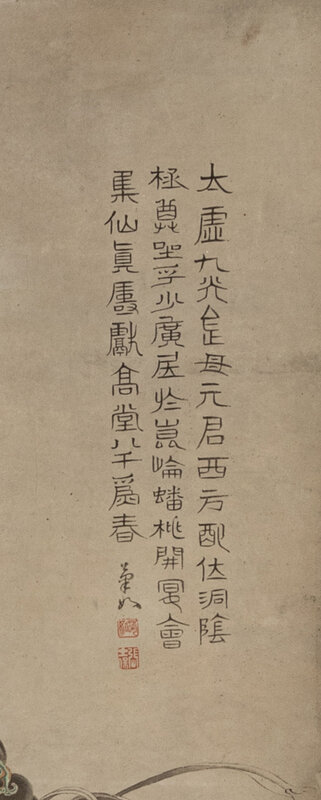 太虛九光母元君西方配位洞陰
極尊坐乎少廣居於崑崙蟠桃開宴會
集仙眞慶獻高堂八千爲春